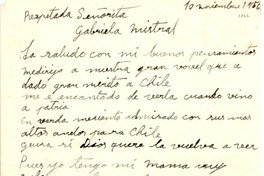 10 noviembre 1956
Respetada Señorita
Gabriela Mistral
La saludo con mi buenos pensamientos
me dirijo a nuestra gran novel que a
dado gran merito a Chile
me e encantado de verla cuando vino
a patria
En verda necento admirado con sus mas
altos anelos para Chile
si Dios quere la vuelva a ver
Pues yo tengo mi Mama muy